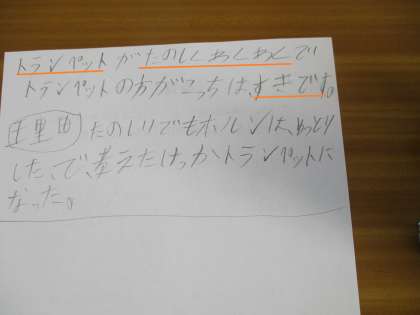 トランペットがたのしくわくわくで
トランペットの方がこっちは、すきです。
理由 たのしいでもホルンは、ゆっとり
した、で、考えたけっかトランペットに
なった。